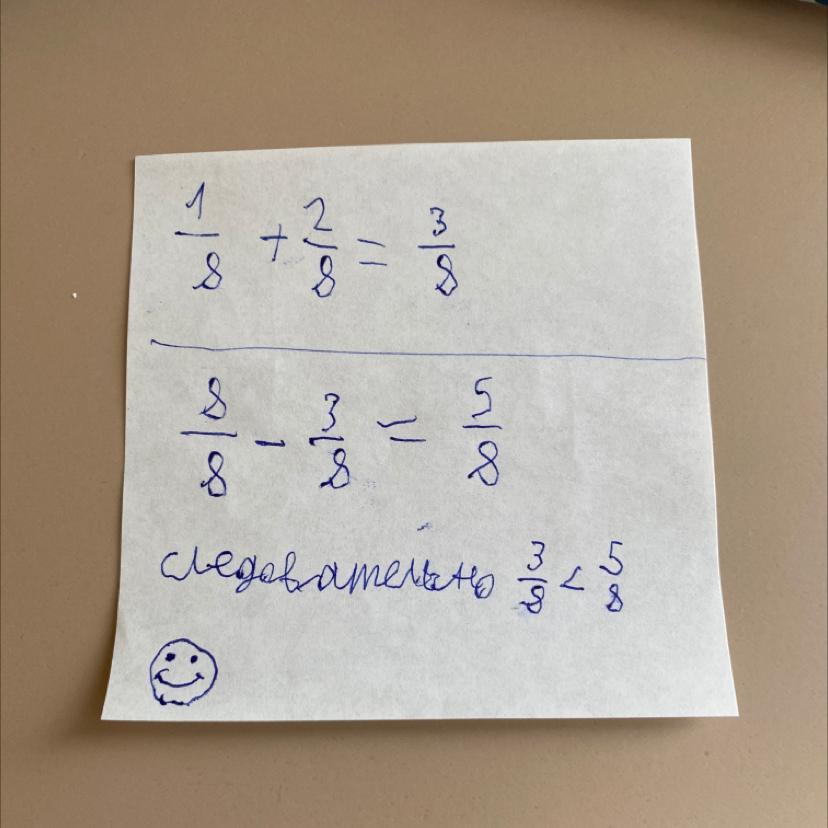 1/8 + 2/8 = 3/8
8/8 - 3/8 = 5/8
следовательно 3/8 < 5/8